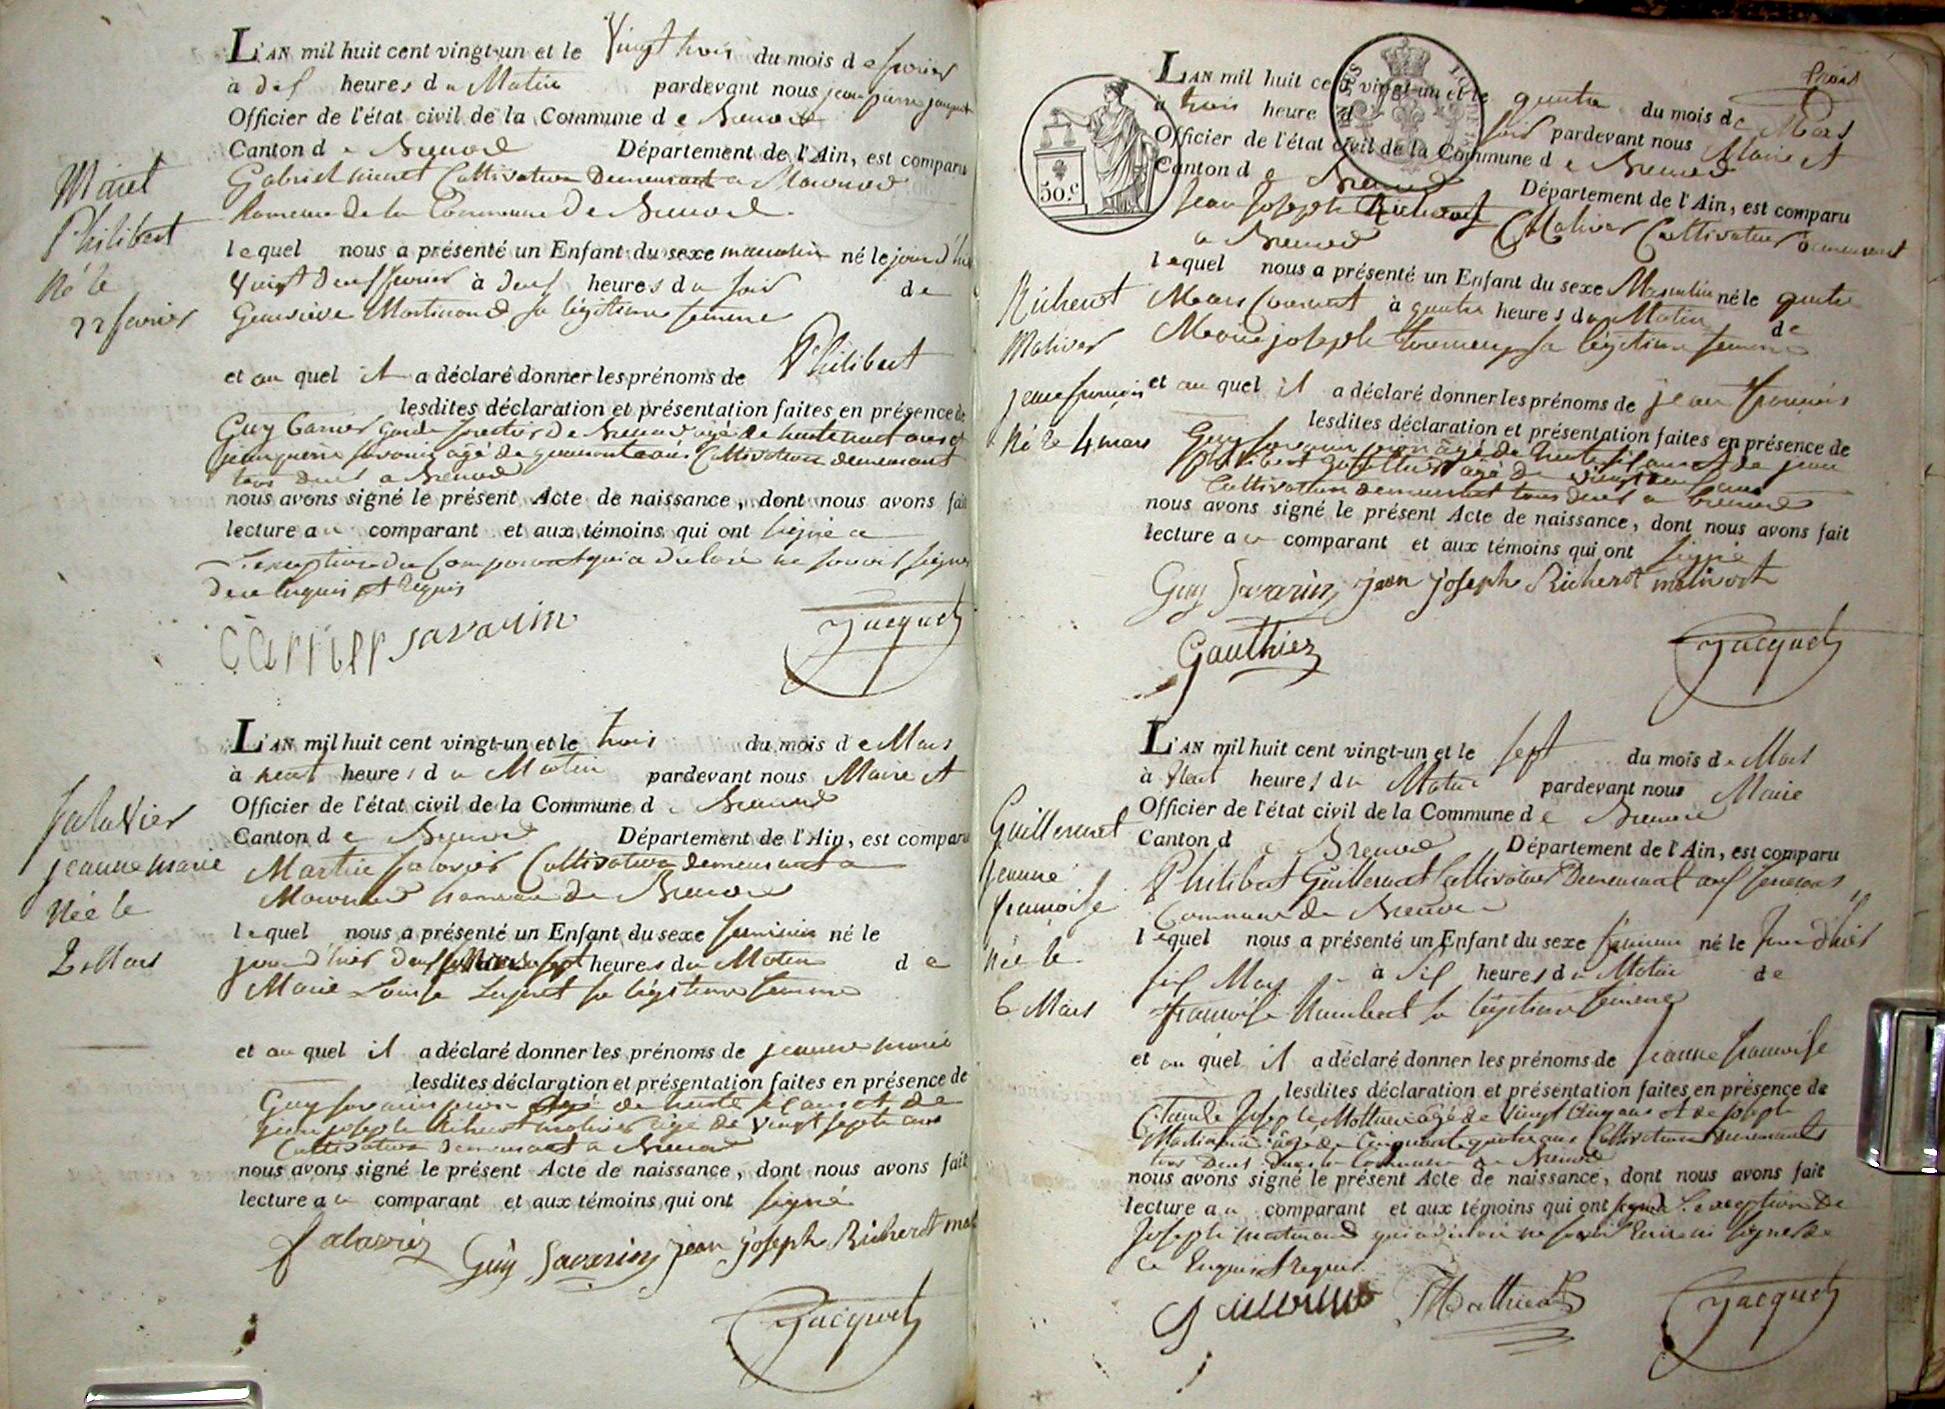 L'AN mil huit cent vingt-un et le Vingt trois du mois de fevrier
à dix heures du Matin pardevant nous jean pierre jacquet
Officier de l'état civil de la Commune de Brenod
Canton de Brenod Département de l'Ain, est comparu
Gabriel Cultivateur Demeurant a
hameau de la Commune De Brenod
lequel nous a présenté un Enfant du sexe masculin né le jour d'hier
Vingt Deux fevrier à Deux heures du soir de
Genevieve Martinand sa légitime femme
et au quel il a déclaré donner les prénoms de Philibert
lesdites déclaration et présentation faites en présence de
Guy Carrier Garde forestier de Brenod agé de trente huit ans et
jean pierre savarin agé de quarante ans Cultivateur demeurant
tous deux a Brenod
nous avons signé le présent Acte de naissance, dont nous avons fait
lecture au comparant et aux témoins qui ont signé a
l'exception du Comparant qui a déclaré ne savoir signer
de ce Enquis et Requis
carrier savarin Jacquet
Philibert
Né le
22 fevrier
L'AN mil huit cent vingt-un et le trois du mois de Mars
à neuf heures du Matin pardevant nous Maire et
Officier de l'état civil de la Commune de Brenod
Canton de Brenod Département de l'Ain, est comparu
Martin Cultivateur demeurant a
hameau de Brenod
lequel nous a présenté un Enfant du sexe feminin né le
jour d'hier deux Mars à sept heures du Matin de
Marie Louise sa légitime femme
et au quel il a déclaré donner les prénoms de jeanne marie
lesdites déclaration et présentation faites en présence de
Guy savarin agé de trente six ans et de
jean joseph Richerot molivor agé de vingt sept ans
Cultivateur demeurant a Brenod
nous avons signé le présent Acte de naissance, dont nous avons fait
lecture au comparant et aux témoins qui ont signé
Guy Savarin jean joseph Richerot
Jacquet
jeanne marie
Née le
2 Mars
trois
50.c
L'AN mil huit cent vingt-un et le quatre du mois de Mars
à trois heure du soir pardevant nous Maire et
Officier de l'état civil de la Commune de Brenod
Canton de Brenod Département de l'Ain, est comparu
Jean Joseph Richerot Cultivateur demeurant
a Brenod
lequel nous a présenté un Enfant du sexe Masculin né le quatre
Mars Courant à quatre heures du Matin de
Marie joseph sa légitime femme
et au quel il a déclaré donner les prénoms de jean françois
lesdites déclaration et présentation faites en présence de
Guy savarin agé de trente six ans et de jean
philibert gauthier agé de vingt ans
Cultivateur demeurant tous deux a brenod
nous avons signé le présent Acte de naissance, dont nous avons fait
lecture au comparant et aux témoins qui ont signé
Guy Savarin jean joseph Richerot
Gauthier Jacquet
Richerot
jean françois
Né le 4 mars
L'AN mil huit cent vingt-un et le sept du mois de Mars
à neuf heures du Matin pardevant nous Maire
Officier de l'état civil de la Commune de Brenod
Canton de Brenod Département de l'Ain, est comparu
Philibert Guillermet Cultivateur Demeurant
Commune de Brenod
lequel nous a présenté un Enfant du sexe féminin né le jour d'hier
six Mars à six heures du Matin de
françoise Humbert sa légitime femme
et au quel il a déclaré donner les prénoms de jeanne françoise
lesdites déclaration et présentation faites en présence de
Claude Joseph agé de vingt Cinq ans et de joseph
agé de Cinquante quatre ans Cultivateur demeurants
tous Deux dans la Commune de Brenod
nous avons signé le présent Acte de naissance, dont nous avons fait
lecture au comparant et aux témoins qui ont signé l'exception de
Joseph martinand qui a déclaré ne savoir Ecrire ni signer de
ce Enquis et requis
Jacquet
Guillermet
jeanne
françoise
Née le
6 Mars